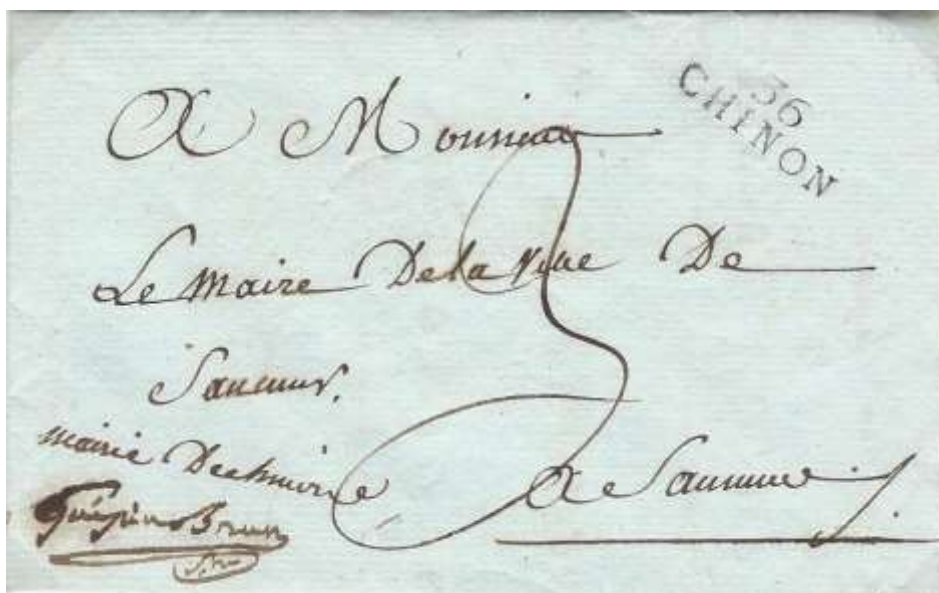 36
CHINON
A Monsieur
Le Maire De la Ville De
Saumur.
mairie De chinon
3
a Saumur